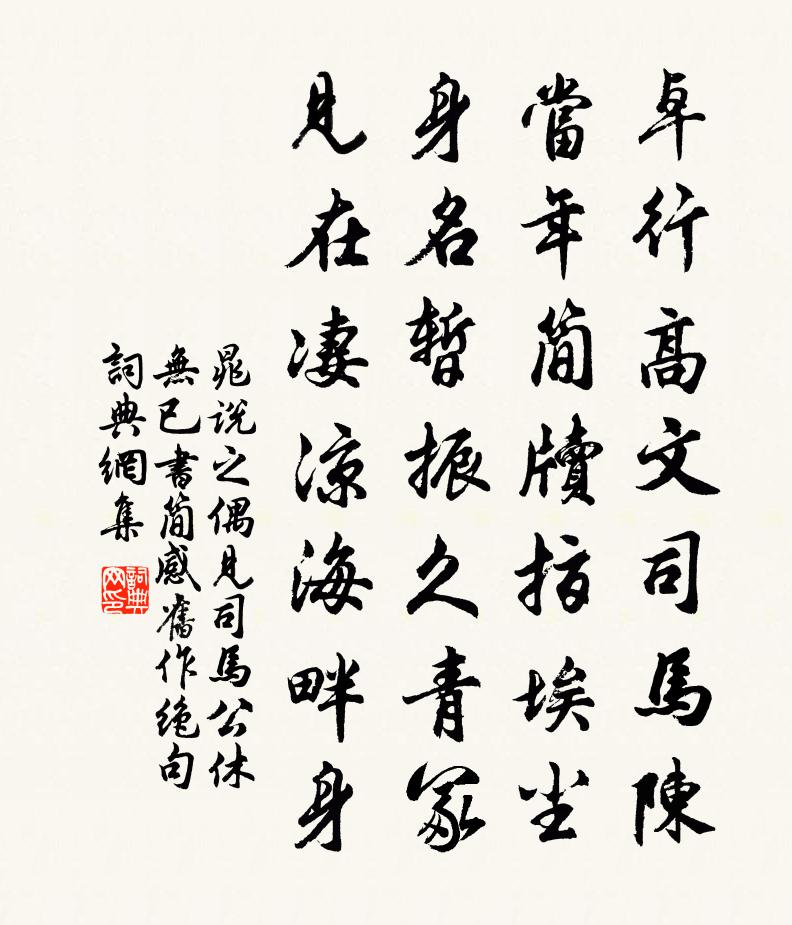 卓行高文司馬陳
當年簡牘指埃尘
身名暫振久青冢
見在凄涼海畔身
晁說之偶見司馬公休
無已書簡感舊作絕句
詞典網集
詞典網印